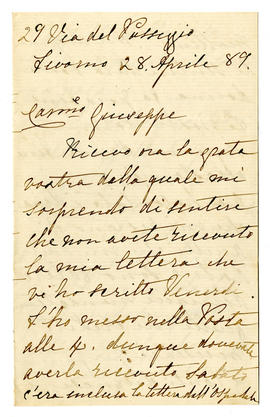 29 Via del Passeggio
Livorno 28 Aprile 89.
Carmo Giuseppe
Ricevo ora la grata
vostra dalla quale mi
sorprendo di sentire
che non avete ricevuto
la mia lettera che
vi ho scritto Venerdi.
L'ho messo nella Posta
alle 4. dunque dovevate
averla ricevuto Sabato
c'era inclusa la lettera dell'Ospedale